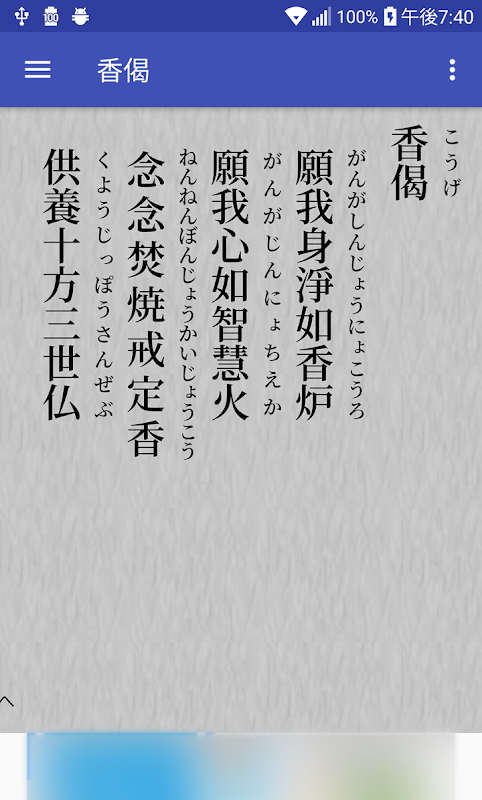 100% 午後7:40
香偈
こうげ
香偈
がんがしんじょうにょこうろ
願我身淨如香炉
がんがじんにょちえか
願我心如智慧火
ねんねんぼんじょうかいじょうこう
念念焚焼戒定香
くようじっぽうさんぜぶ
供養十方三世仏
へ